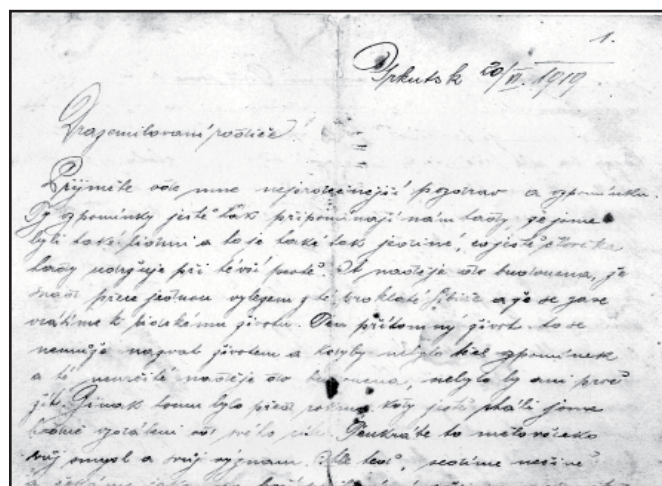 1.
Irkutsk 20/VI. 1919
Drazemilovaní rodiče!
Přijměte ode mne nejsrdečnější pozdrav a zpomínku.
Ty zpomínky ještě tak připomínají nám tady že jsme
byli také lidmi a to je také tak jediné, co ještě člověka
tady udržuje při té vší psotě. A naděje do budoucna, že
snad přece jednou vylezem z té prokleté Sibiře a že se zase
vrátíme k lidskému životu. Ten přítomný život to se
nemůže nazvat životem a kdyby nebylo těch zpomínek
a té neurčité naděje do budoucna, nebylo by ani proč
žít. Jinak tomu bylo před rokem, kdy ještě stáli jsme
vzdáleni od svého cíle. Tenkráte to mělo všecko
svůj smysl a svůj význam. Ale teď, sedíme nečinně
a čekáme